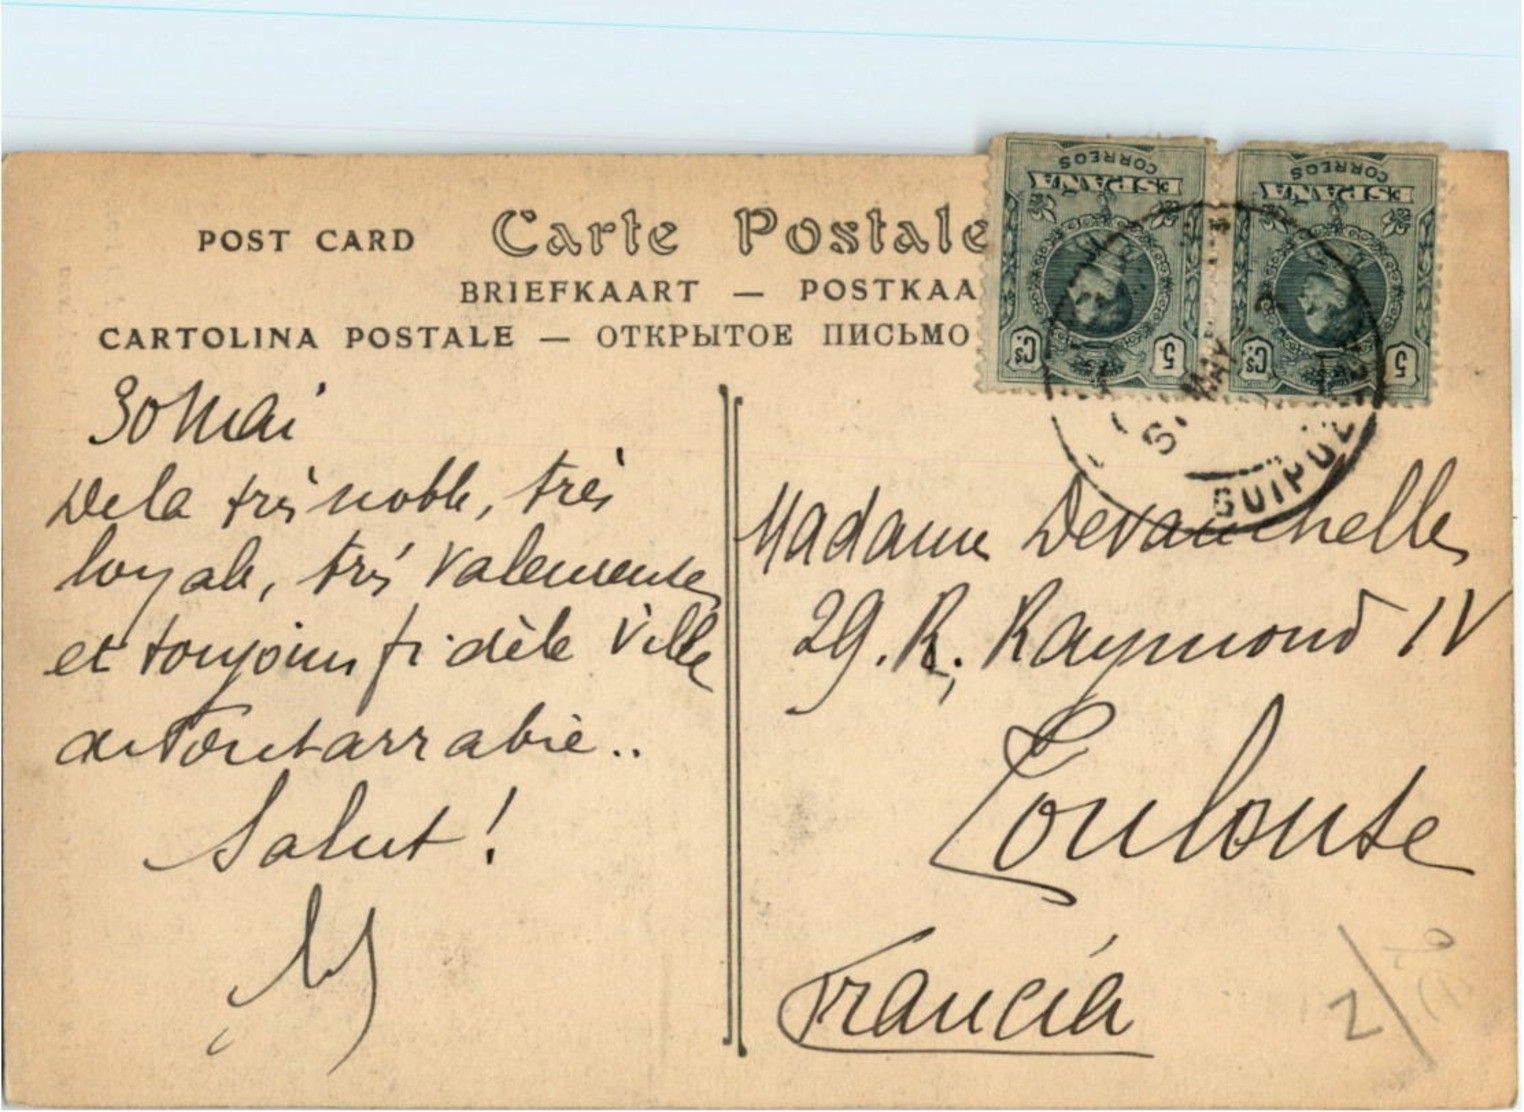 POST CARD Carte Postale
BRIEFKAART — POSTKAA
CARTOLINA POSTALE — ОТКРЫТОЕ ПИСЬМО
CORREOS
ESPAÑA
5 Cs
CORREOS
ESPAÑA
5 Cs
GUIPUZ
30 Mai
De la très noble, très
loyale, très Valeureuse
et toujours fidèle Ville
de Fontarrabie..
Salut!
Madame Devauchelle
29. R. Raymond IV
Toulouse
Francia